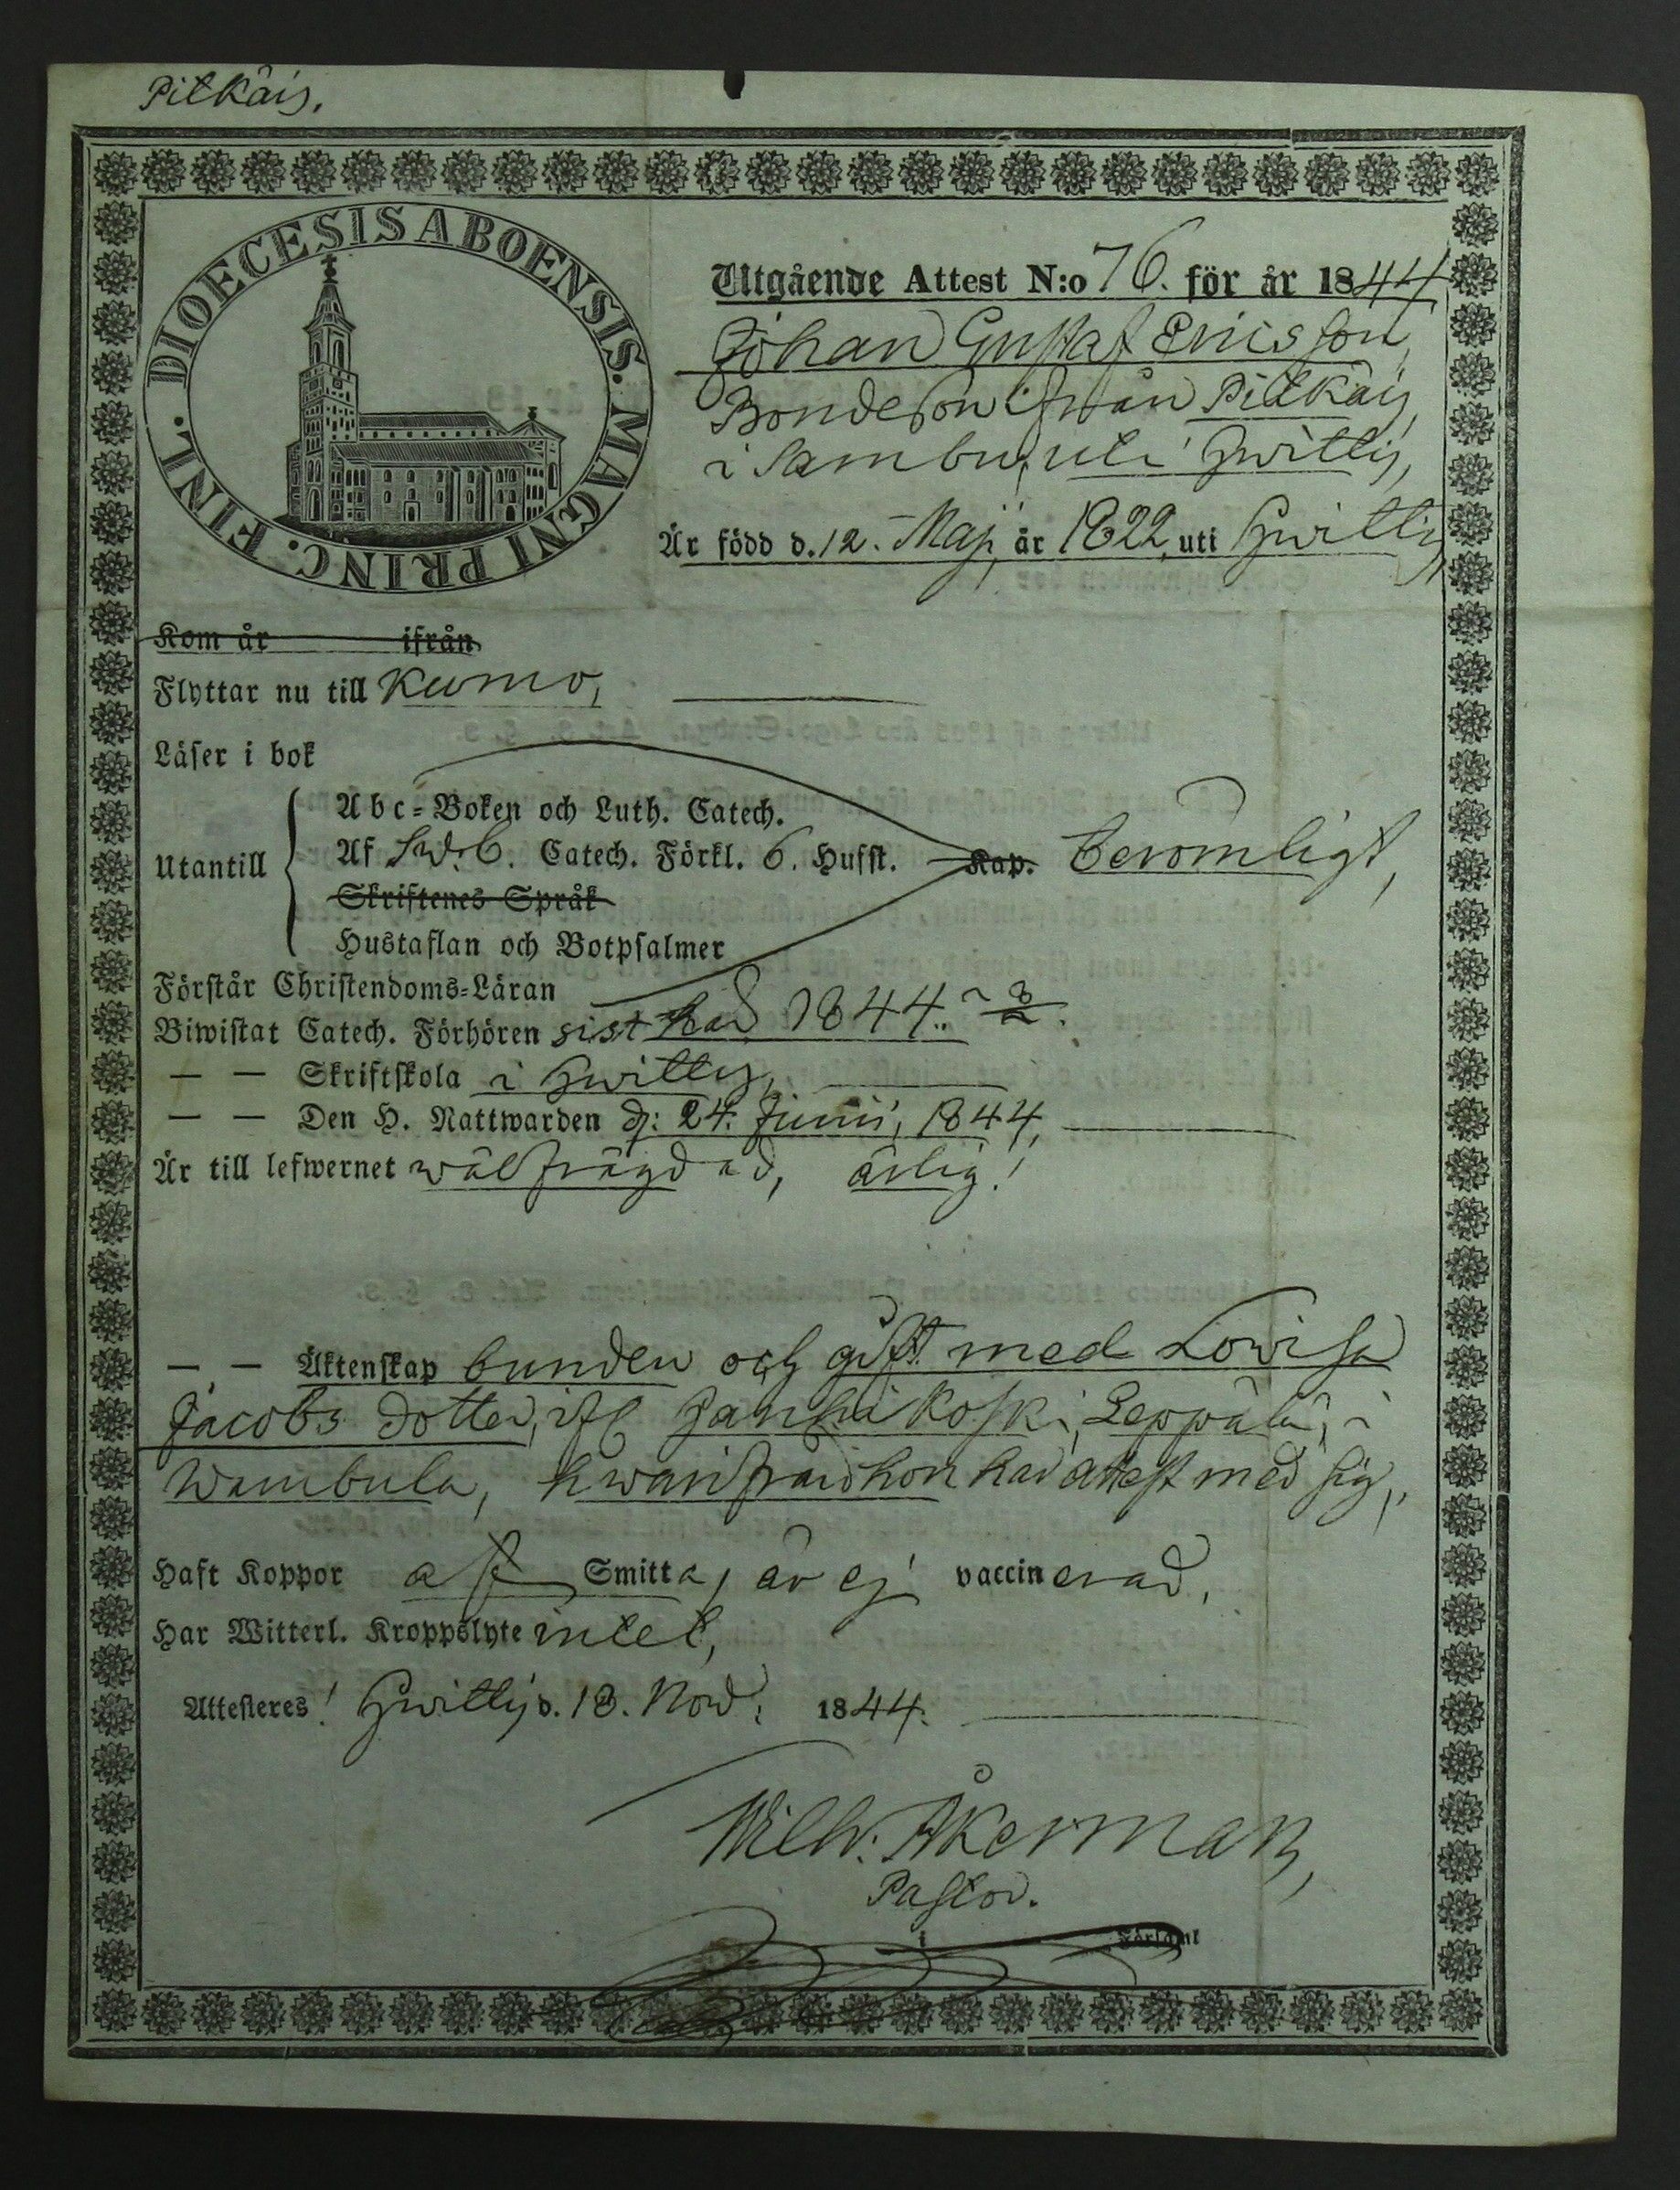 Pitkäis,
DIOECESIS ABOENSIS. MAGNI PRINC. FINL.
Utgående Attest N:o 76. för år 1844
Johan Gustaf Ericsson,
Bondeson ifrån Pitkäis,
i Sambu, uti Hwittis,
Är född d. 12. Maji, år 1822, uti Hwittis,
Kom år ifrån
Flyttar nu till Kumo,
Läser i bok
Abc-Boken och Luth. Catech.
Utantill Af Sw:b. Catech. Förkl. 6. Hufst. Kap. berömligt,
Skriftenes Språk
Hustaflan och Botpsalmer
Förstår Christendoms-Läran
Biwistat Catech. Förhören sist här 1844.
— — Skriftskola i Hwittis,
— — Den H. Nattwarden d: 24. Junii, 1844,
Är till lefwernet wälfrägdad, ärlig!
— — Äktenskap bunden och gift med Lowisa
Jacobs dotter, ifr. Janhikoski, Leppälä, i
Wambula, hwarifrån hon har attest med sig,
Haft Koppor af Smitta, är ej vaccinerad,
Har Witterl. Kroppslyte intet,
Attesteres! Hwittis d. 18. Nov: 1844.
Wilh. Åkerman,
Pastor.
i Församl